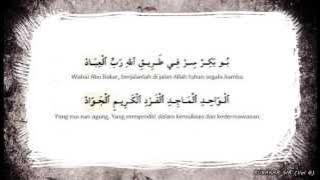 بُو بَكِرْ سِرْ فِي طَرِيقِ اللهِ رَبِّ الْعِبَادْ
Wahai Abu Bakar, berjalanlah di jalan Allah tuhan segala hamba.
الْوَاحِدِ الْمَاجِدِ الْفَرْدِ الْكَرِيمِ الْجَوَادْ
Yang esa nan agung, Yang menyendiri dalam kemuliaan dan kedermawanan.